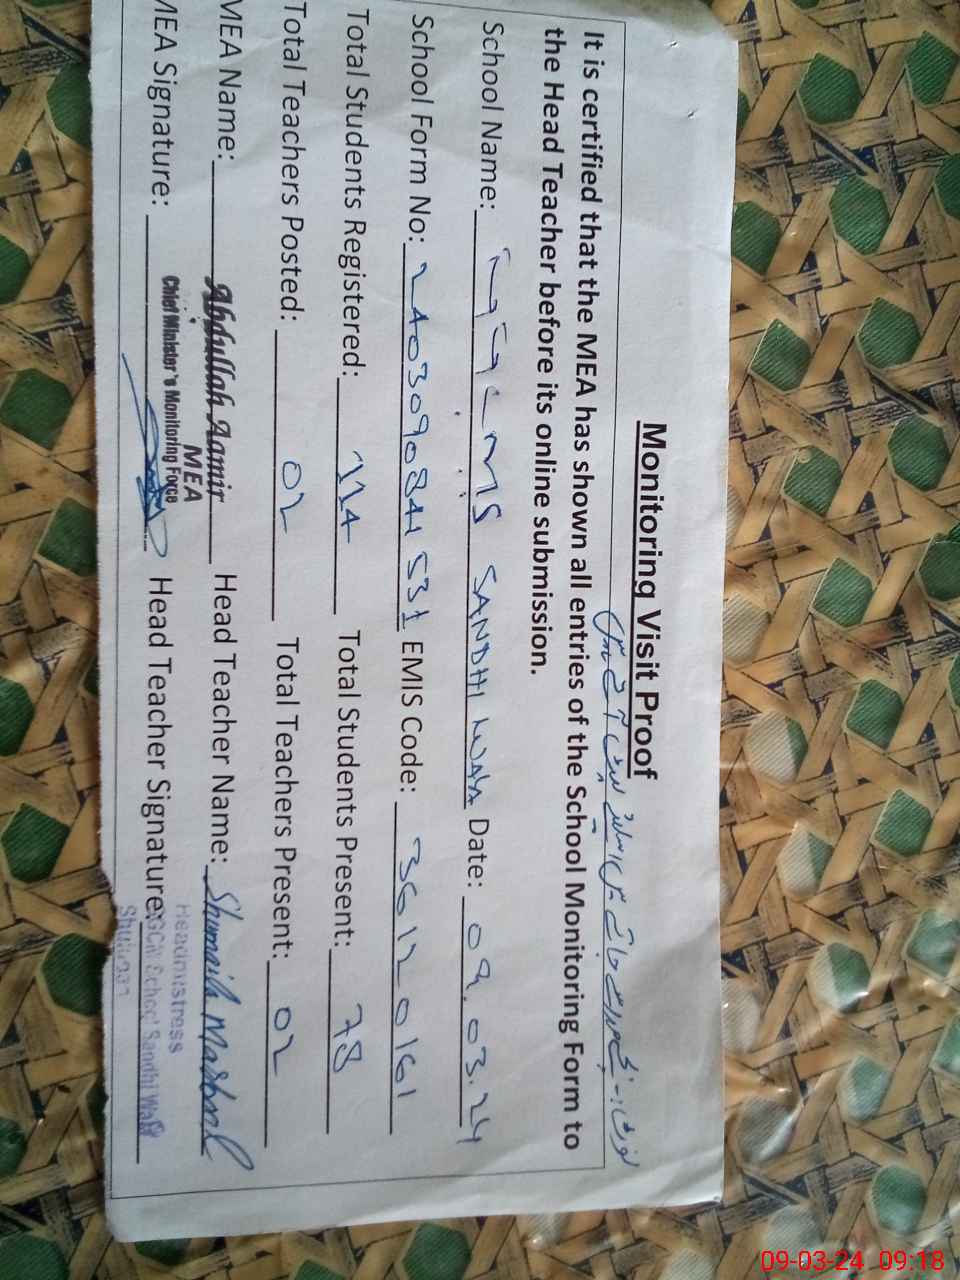 Monitoring Visit Proof
It is certified that the MEA has shown all entries of the School Monitoring Form to
the Head Teacher before its online submission.
School Name: SANDHI WALA Date: 09.03.24
School Form No: 2403090841531 EMIS Code: 36120161
Total Students Registered: 114 Total Students Present: 78
Total Teachers Posted: 02 Total Teachers Present: 02
MEA Name: Abdullah Aamir Head Teacher Name: Shumaila
MEA
Chief Minister's Monitoring Force
MEA Signature: Head Teacher Signature:
Headmistress
School Sandhi Wala
09-03-24 09:18